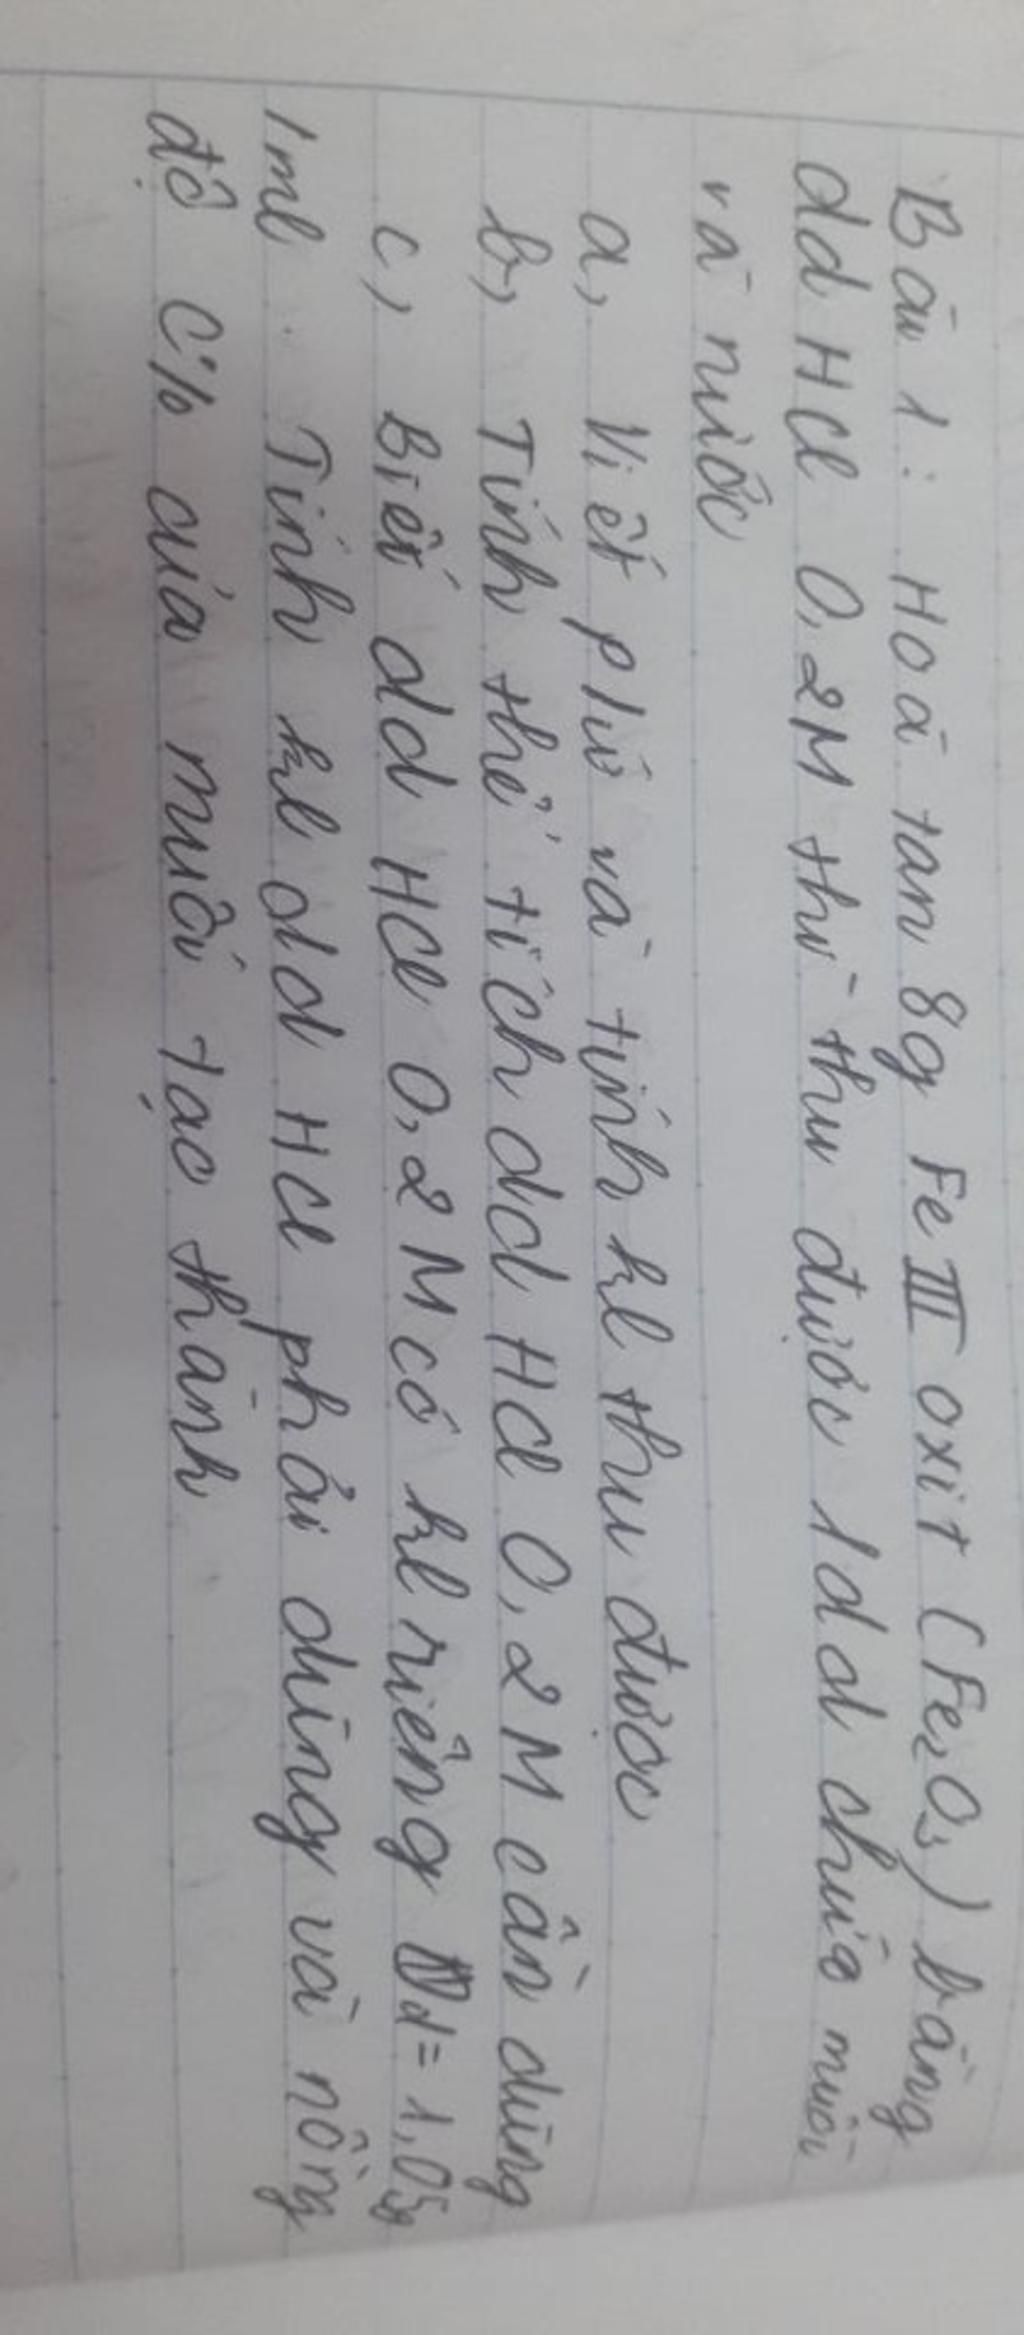 Bài 1: Hoà tan 8g Fe III oxit (Fe2O3) bằng
dd HCl 0,2M thì thu được 1dd chứa muối
và nước
a, Viết ptư và tính kl thu được
b, Tính thể tích dd HCl 0,2M cần dùng
c, Biết dd HCl 0,2M có kl riêng Dd=1,05g
1ml. Tính kl dd HCl phải dùng và nồng
độ C% của muối tạo thành